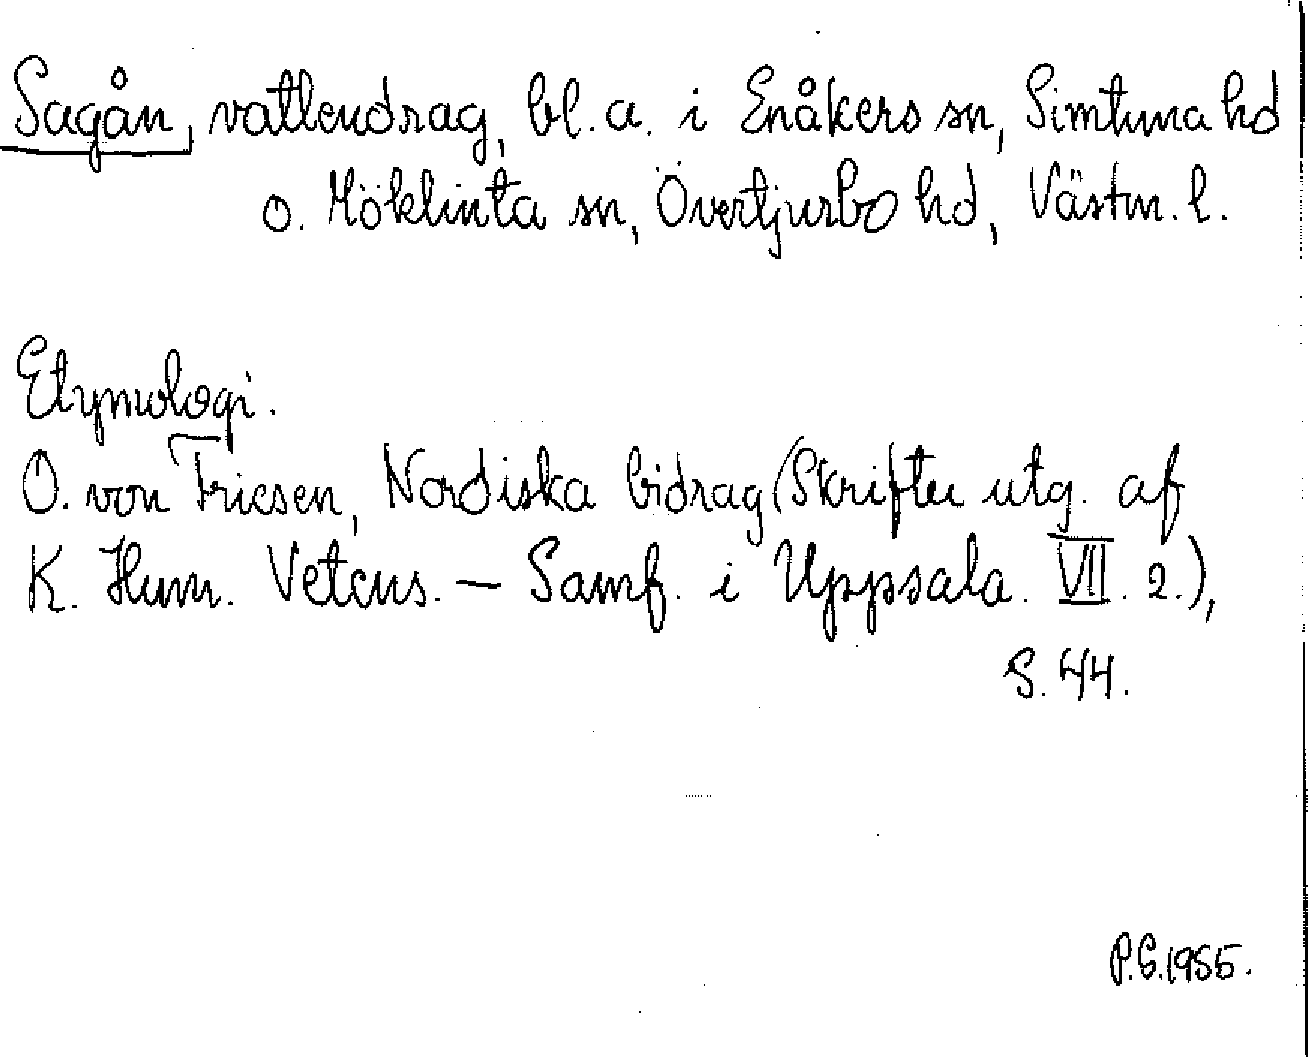 Sagån, vattendrag, bl. a. i Enåkers sn, Simtuna hd
o. Möklinta sn, Övertjurbo hd, Västm. l.
Etymologi.
O. von Friesen, Nordiska bidrag (Skrifter utg. af
K. Hum. Vetens. - Samf. i Uppsala. VII. 2.),
S. 44.
P.G. 1955.